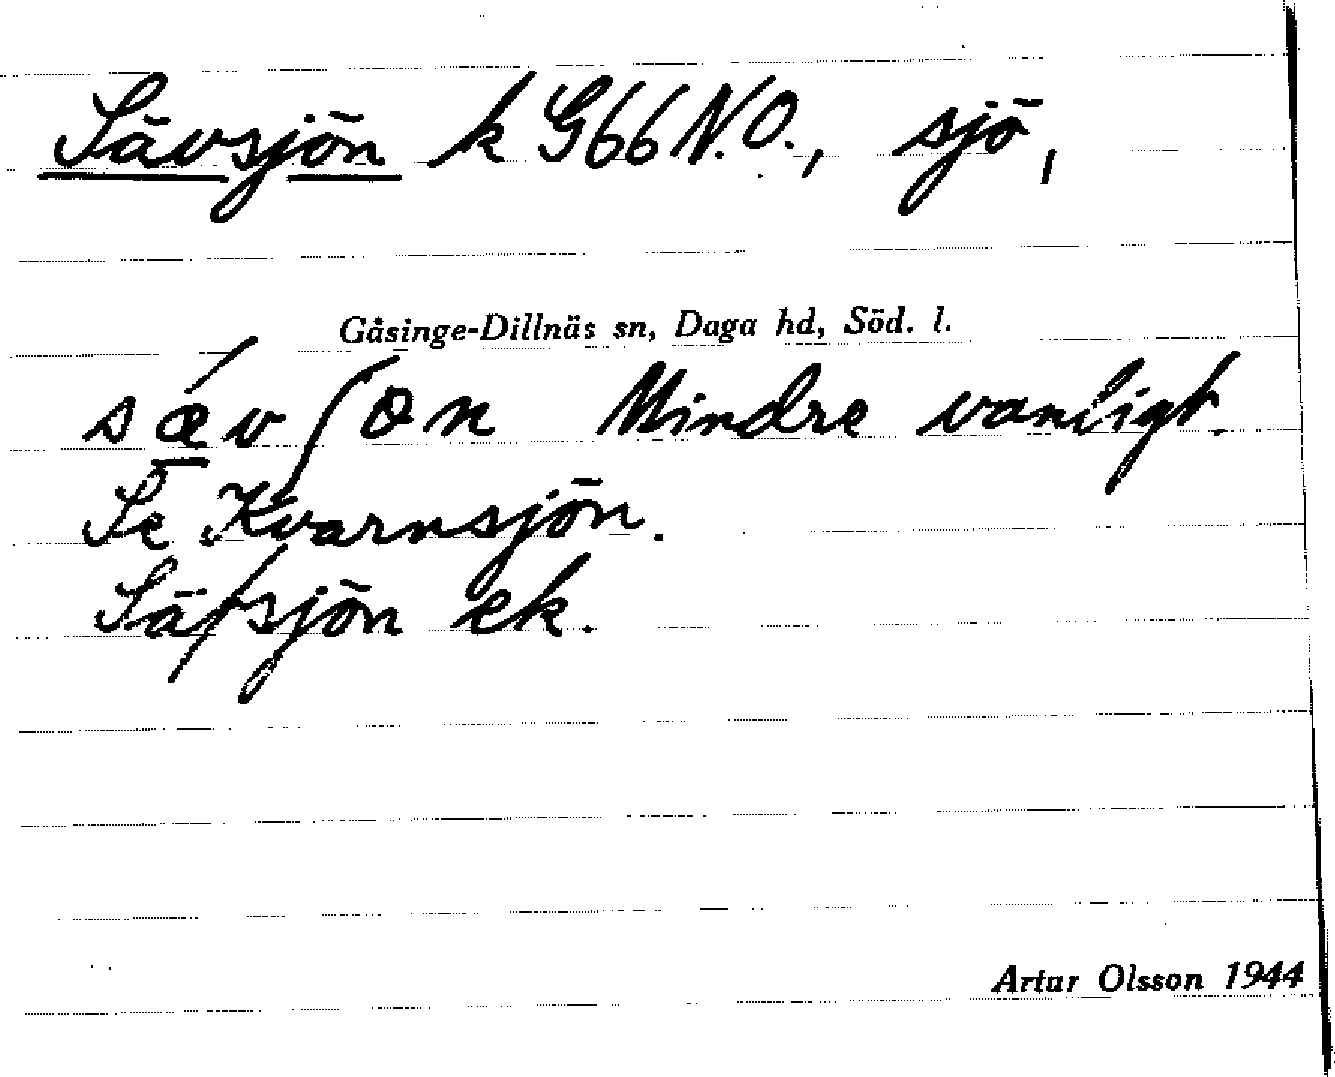 Sävsjön k G66 N.O., sjö,
Gåsinge-Dillnäs sn, Daga hd, Söd. l.
sǽvʃɵn Mindre vanligt.
Se Kvarnsjön.
Säfsjön ek.
Artur Olsson 1944